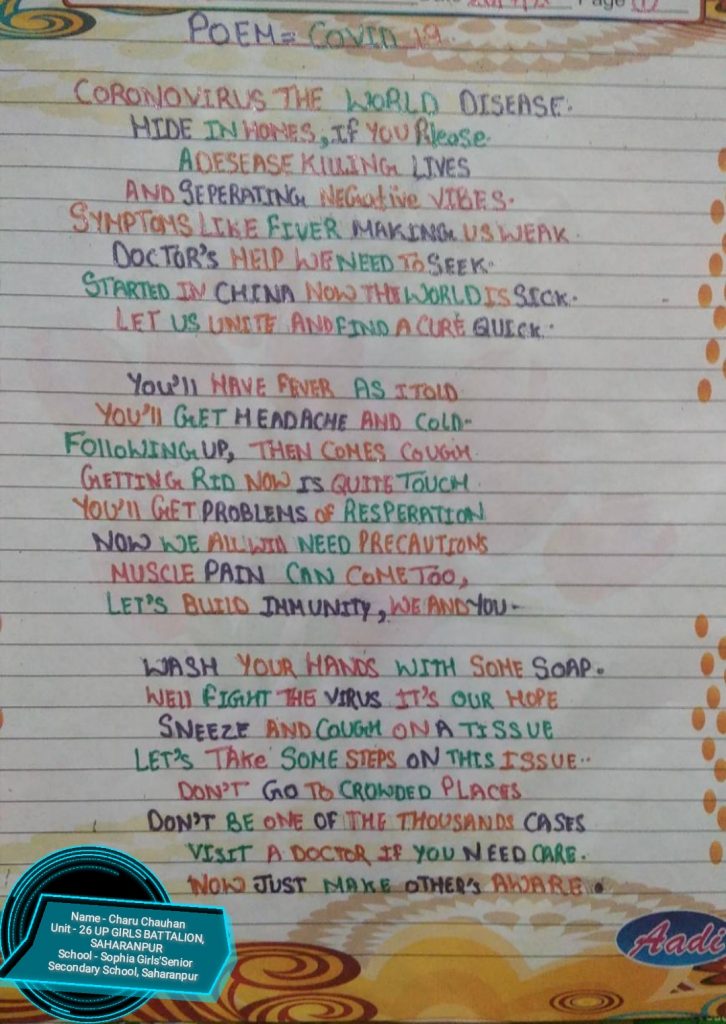 Page
POEM = COVID 19.
CORONOVIRUS THE WORLD DISEASE.
HIDE IN HOMES, If YOU Please.
A DESEASE KILLING LIVES
AND SEPERATING NEGative VIBES.
SYMPTOMS LIKE FIVER MAKING US WEAK.
DOCTOR'S HELP WE NEED TO SEEK.
STARTED IN CHINA NOW THE WORLD IS SICK.
LET US UNITE AND FIND A CURE QUICK.
YOU'll HAVE FEVER AS I TOLD
YOU'll GET HEADACHE AND COLD-
FOllOWING UP, THEN COMES COUGH.
GETTING RID NOW IS QUITE TOUGH.
YOU'll GET PROBLEMS Of RESPERATION
NOW WE ALL WILL NEED PRECAUTIONS
MUSCLE PAIN CAN COME TOO,
LET'S BUILD IMMUNITY, WE AND YOU-
WASH YOUR HANDS WITH SOME SOAP.
WEll FIGHT THE VIRUS IT'S OUR HOPE
SNEEZE AND COUGH ON A TISSUE
LET'S TAKE SOME STEPS ON THIS ISSUE..
DON'T GO TO CROWDED PLACES
DON'T BE ONE OF THE THOUSANDS CASES
VISIT A DOCTOR IF YOU NEED CARE.
NOW JUST MAKE OTHER'S AWARE.
Name - Charu Chauhan
Unit - 26 UP GIRLS BATTALION,
SAHARANPUR
School - Sophia Girls'Senior
Secondary School, Saharanpur
Aadi